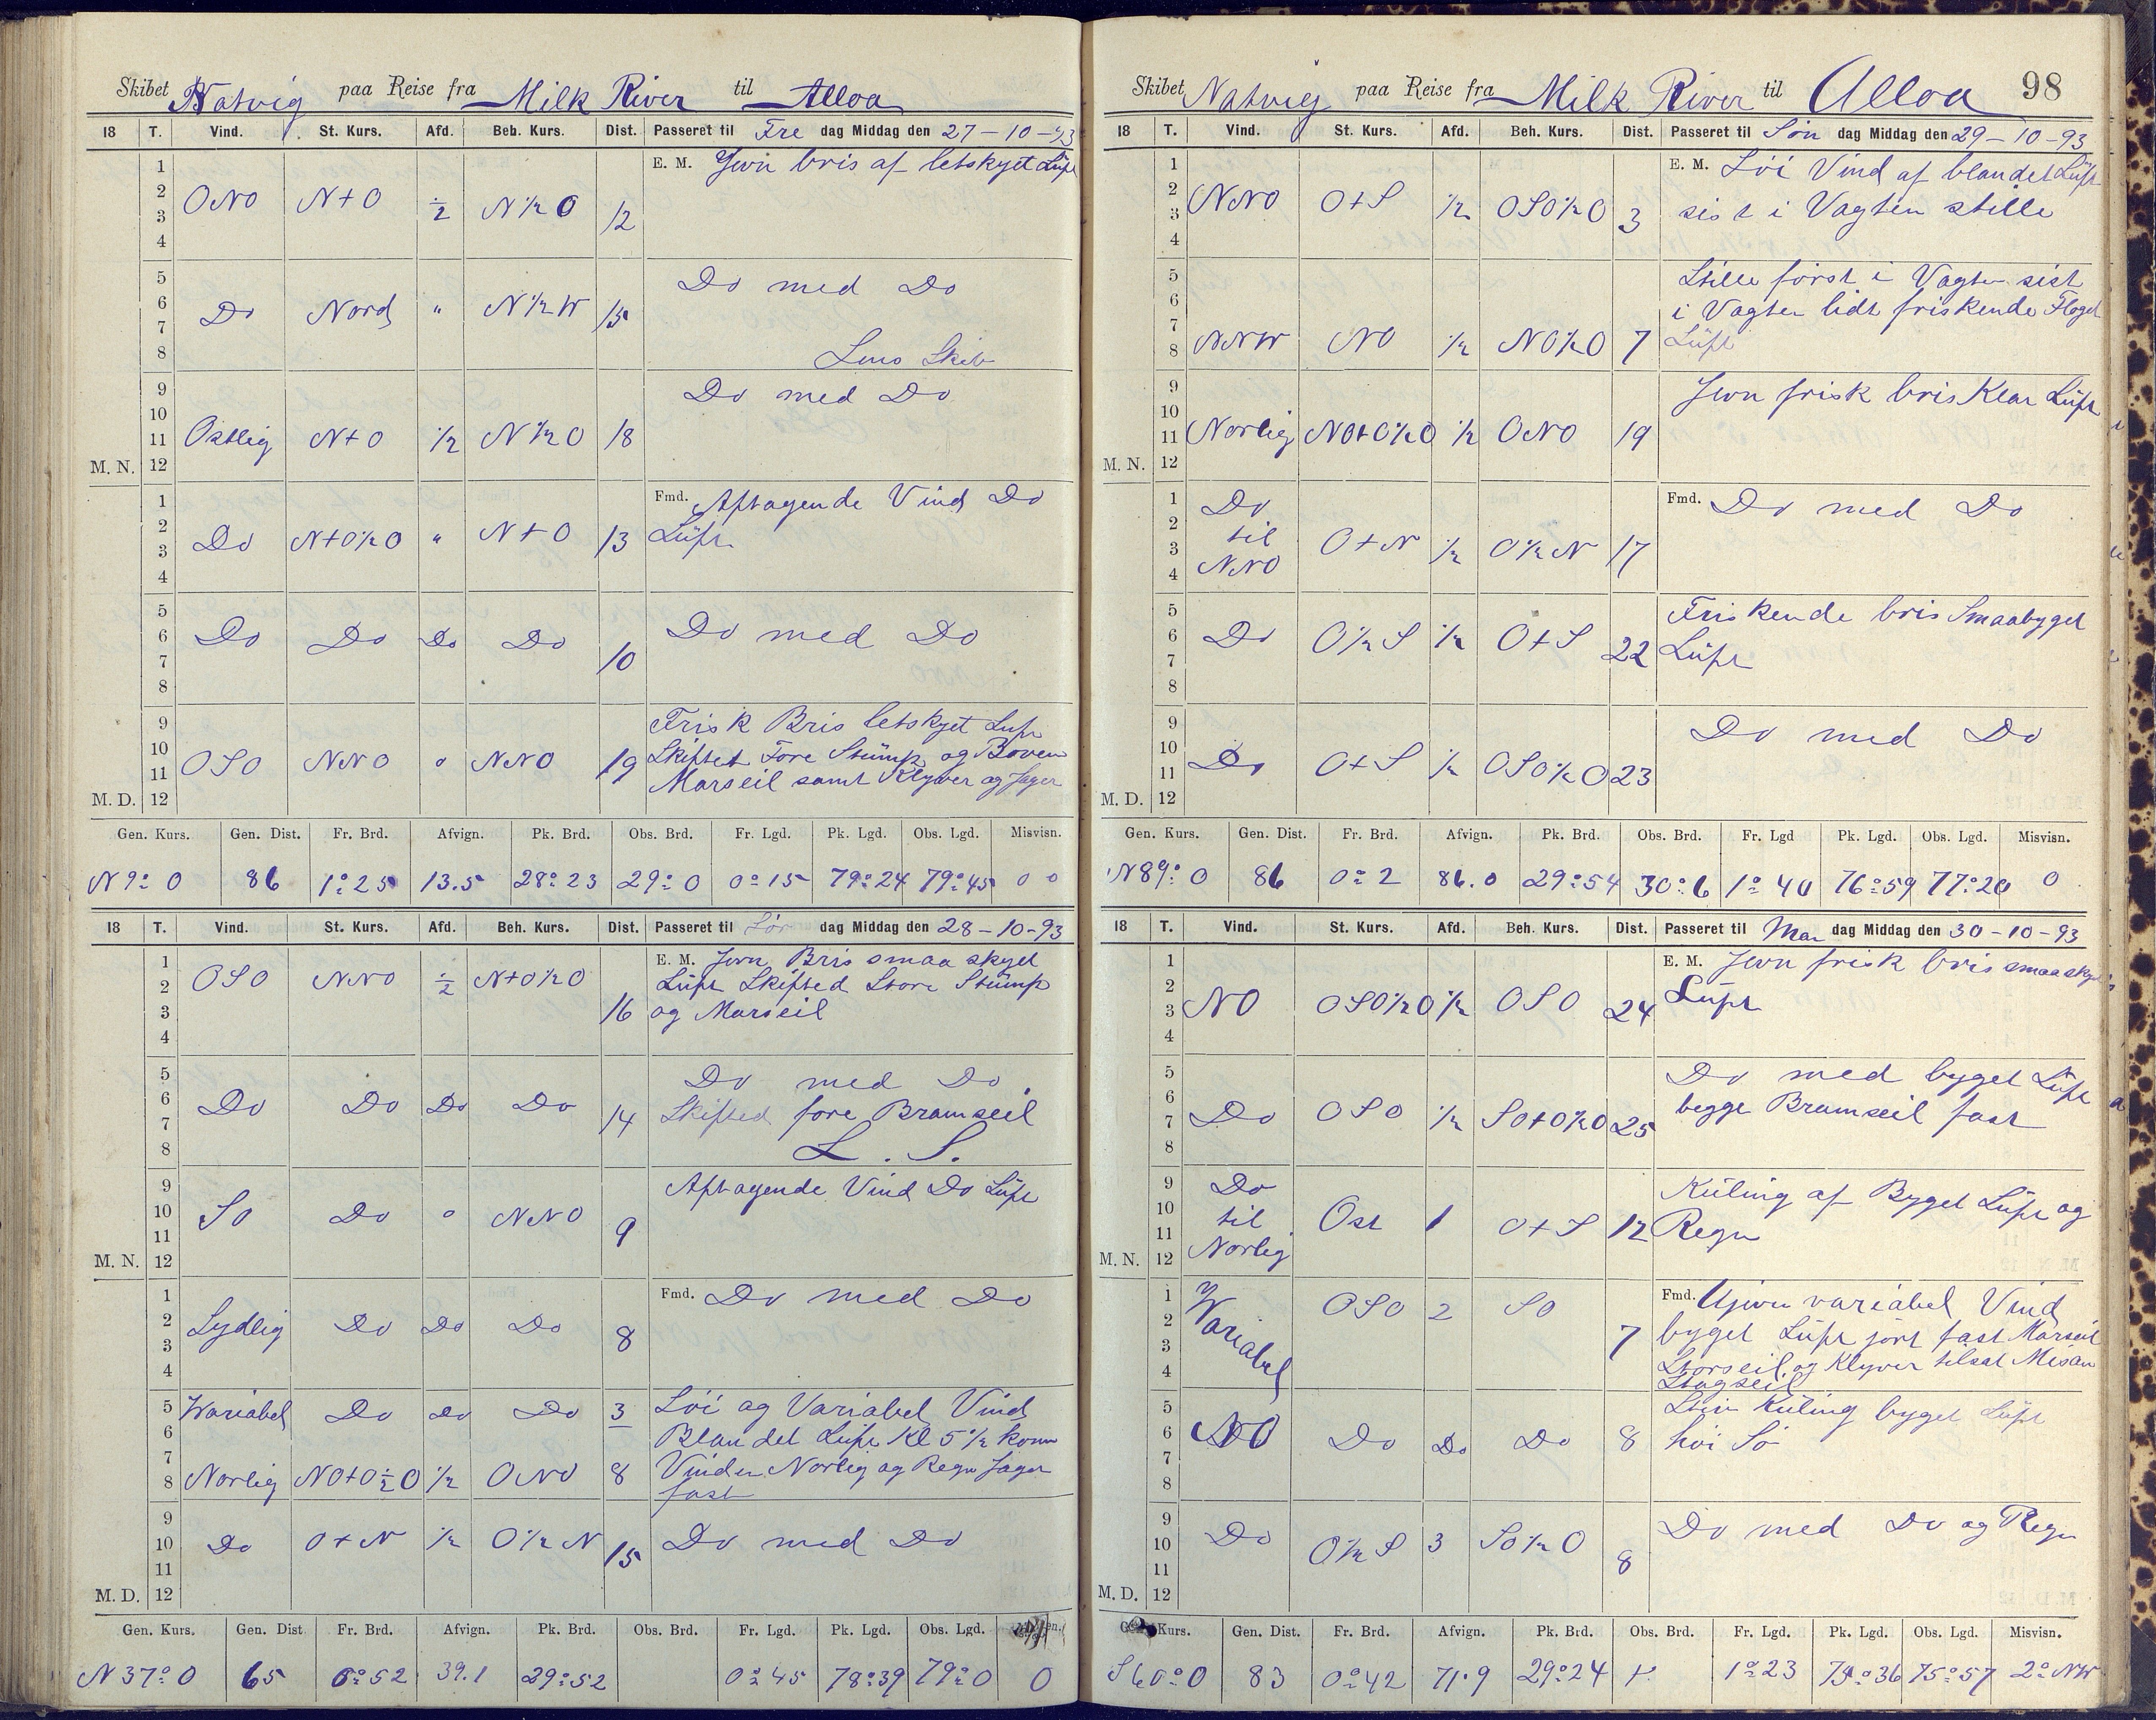 Skibet Natvig paa Reise fra Milk River til Alloa
18 T. Vind. St. Kurs. Afd. Beh. Kurs. Dist. Passeret til Fre dag Middag den 27-10-93
1 E. M. Jevn bris af letskyet Luft
2 ONO N+O ½ N½O 12
3
4
5 Do med Do
6 Do Nord " N½W 15
7
8 Lens Skib
9 Do med Do
10
11 Ostlig N+O ½ N½O 18
M. N. 12
1 Fmd. Aftagende Vind Do
2 Do N+O½O " N+O 13 Luft
3
4
5
6 Do Do Do Do 10 Do med Do
7
8
9 Frisk Bris letskyet Luft
10 Skiftet Fore Stump og Boven
11 OSO NNO " NNO 19 Marseil samt Klyver og Jager
M. D. 12
Gen. Kurs. Gen. Dist. Fr. Brd. Afvign. Pk. Brd. Obs. Brd. Fr. Lgd. Pk. Lgd. Obs. Lgd. Misvisn.
N 9° O 86 1° 25 13.5 28° 23 29° 0 0° 15 79° 24 79° 45 0 °
18 T. Vind. St. Kurs. Afd. Beh. Kurs. Dist. Passeret til Lør dag Middag den 28-10-93
1 E. M. Jevn Bris smaa skyet
2 OSO NNO ½ N+O½O Luft Skifted Store Stump
3 16 og Marseil
4
5 Do med Do
6 Do Do Do Do 14 Skifted fore Bramseil
7
8 L. S.
9 Aftagende Vind Do Luft
10 SO Do " NNO 9
11
M. N. 12
1 Fmd. Do med Do
2 Sydlig Do Do Do 8
3
4
5 Variabel Do Do Do 3 Löi og Variabel Vind
6 Blandet Luft Kl 5½ kom
7 Vinden Norlig og Regn Jager
8 Norlig NO+O½O ½ ONO 8 fast
9
10 Do O+N ½ O½N 15 Do med Do
11
M. D. 12
Gen. Kurs. Gen. Dist Fr. Brd. Afvign. Pk. Brd. Obs. Brd. Fr. Lgd. Pk. Lgd. Obs. Lgd.
N 37° O 65 0° 52 39.1 29° 52 0° 45 78° 39 79° 0 0
Skibet Natvig paa Reise fra Milk River til Alloa 98
18 T. Vind. St. Kurs. Afd. Beh. Kurs. Dist. Passeret til Søn dag Middag den 29-10-93
1 E. M. Löi Vind af blandet Luft
2 NNO O+S ½ OSO½O 3 sist i Vagten stille
3
4
5 Stille först i Vagten sist
6 i Vagten lidt friskende Floget
7
8 NNW NO ½ NO½O 7 Luft
9 Jevn frisk bris Klar Luft
10
11 Norlig NO+O½O ½ ONO 19
M. N. 12
1 Do Fmd. Do med Do
2 til
3 O+N ½ O½N 17
4 NNO
5 Friskende bris Smaabyget
6 Do O½S ½ O+S 22 Luft
7
8
9 Do med Do
10
11 Do O+S ½ OSO½O 23
M. D. 12
Gen. Kurs. Gen. Dist. Fr. Brd. Afvign. Pk. Brd. Obs. Brd. Fr. Lgd Pk. Lgd. Obs. Lgd. Misvisn.
N 89° O 86 0° 2 86.0 29° 54 30° 6 1° 40 76° 59 77° 20 0
18 T. Vind. St. Kurs. Afd. Beh. Kurs. Dist. Passeret til Man dag Middag den 30-10-93
1 E. M. Jevn frisk bris smaaskyet
2 Luft
3 NO OSO½O ½ OSO 24
4
5 Do med byget Luft
6 begge Bramseil fast
7 Do OSO ½ SO+O½O 25
8
9 Do Kuling af Byget Luft og
10 til Ost 1 O+S 12 Regn
11
M. N. 12 Norlig
1 Variabel OSO 2 SO Fmd. Ujevn variabel Vind
2 7 byget Luft jört fast Marseil
3 Storseil og Klyver tilsat Mesan
4 Stagseil
5 Stiv Kuling byget Luft
6 NO Do Do Do 8 höi Sö
7
8
9 Do med Do og Regn
10 Do O½S 3 SO½O 8
11
M. D. 12
Kurs. Gen. Dist. Fr. Brd. Afvign. Pk. Brd. Obs. Brd. Fr. Lgd. Pk. Lgd. Obs. Lgd. Misvisn.
S 60° O 83 0° 42 71.9 29° 24 1° 23 75° 36 75° 57 2° NW